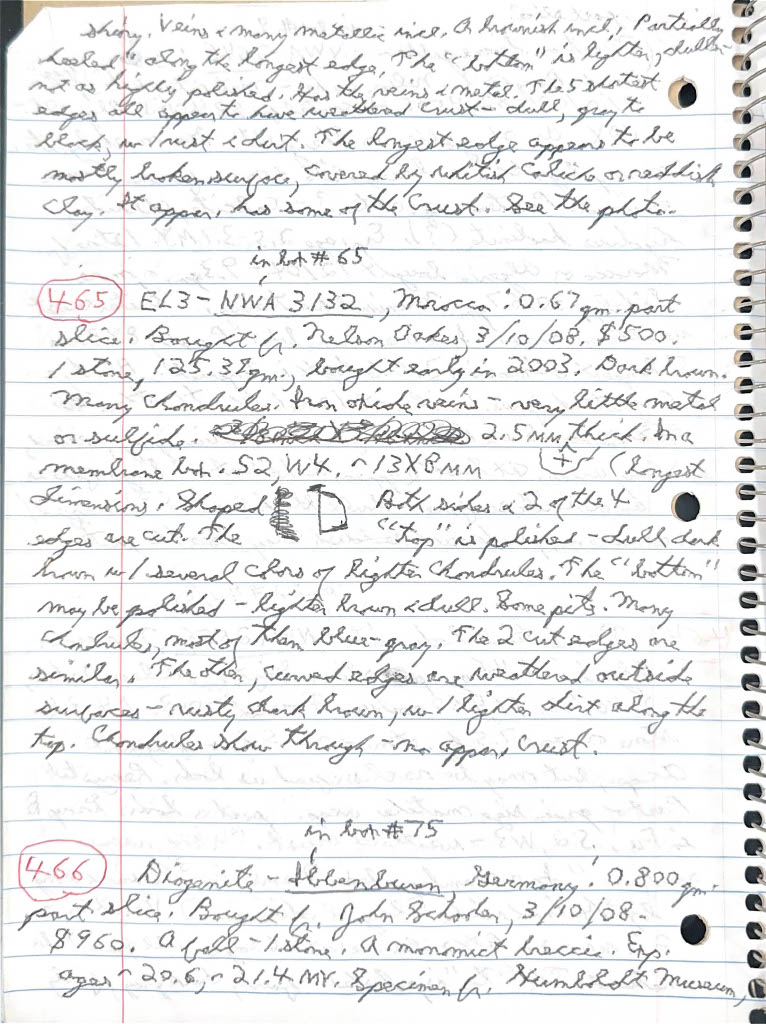 shiny. Veins & many metallic incl. A brownish incl., Partially
healed" along the longest edge. The "bottom" is lighter, duller-
not as highly polished. Has the veins & metal. The 5 shortest
edges all appear to have weathered crust - dull, gray to
black, w/ rust & dirt. The longest edge appears to be
mostly broken surface, covered by whitish Caliche or reddish
clay. It appar. has some of the Crust. See the photo.
in box # 65
465 EL3 - NWA 3132, Morocco: 0.67 gm. part
slice. Bought fr. Nelson Oakes, 3/10/08. $500.
1 stone, 125.38 gm., bought early in 2003. Dark brown.
Many Chondrules. Iron oxide veins - very little metal
or sulfide. 2.5 MM thick. In a
membrane box. S2, W4. ~13X8 MM (longest
dimensions. Shaped Both sides & 2 of the 4
edges are cut. The "top" is polished - dull dark
brown w/ several colors of lighter chondrules. The "bottom"
may be polished - lighter brown & dull. Some pits. Many
chondrules, most of them blue-gray. The 2 cut edges are
similar. The other, curved edges are weathered outside
surfaces - rusty dark brown, w/ lighter dirt along the
top. Chondrules show through - no appar. crust.
in box # 75
466 Diogenite - Ibbenburen, Germany: 0.800 gm.
part slice. Bought fr. John Schooler, 3/10/08-
$960. A fall - 1 stone. A monomict breccia. Exp.
ages ~20.6, ~21.4 MY. Specimen fr. Humboldt Museum,